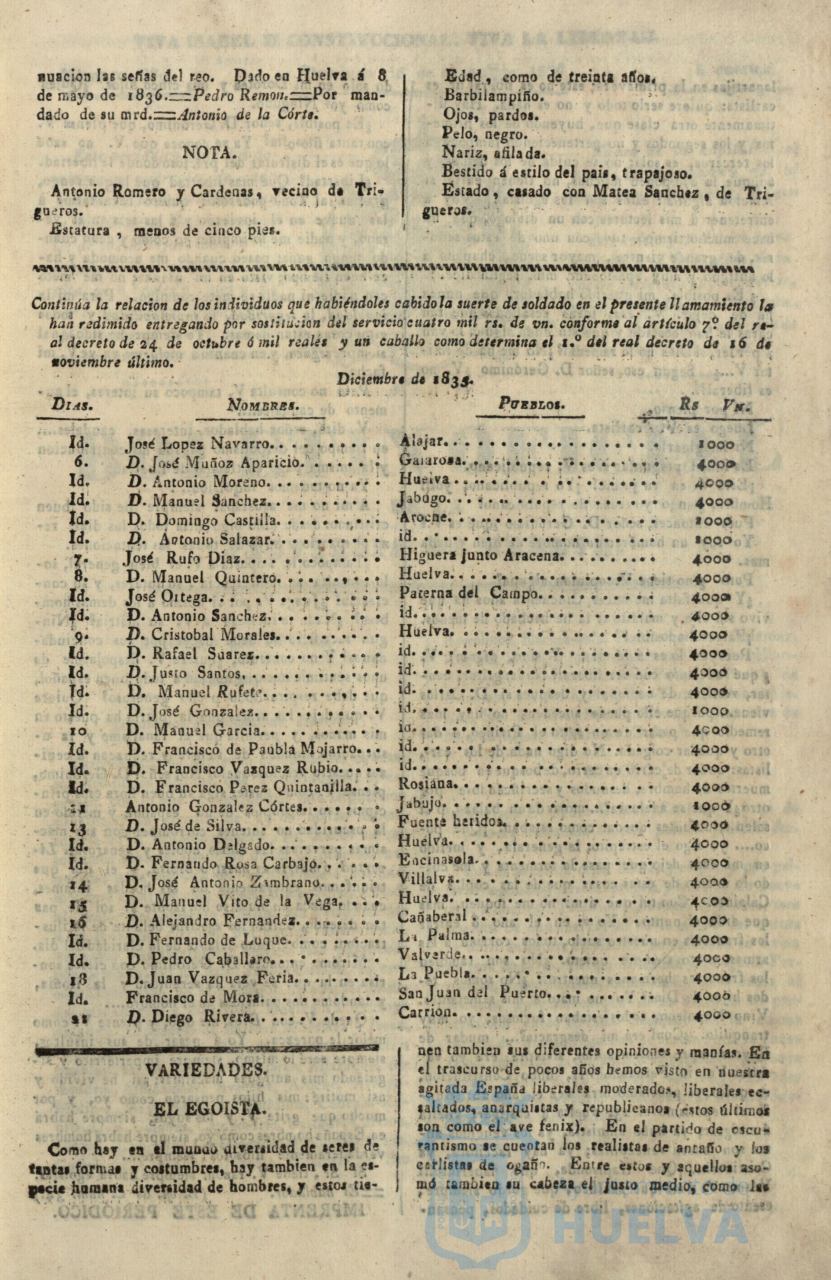 nuacion las señas del reo. Dado en Huelva á 8
de mayo de 1836.==Pedro Remon.==Por man-
dado de su mrd.==Antonio de la Córte.
NOTA.
Antonio Romero y Cardenas, vecino de Tri-
gueros.
Estatura, menos de cinco pies.
Edad, como de treinta años.
Barbilampiño.
Ojos, pardos.
Pelo, negro.
Nariz, afilada.
Bestido á estilo del pais, trapajoso.
Estado, casado con Matea Sanchez, de Tri-
gueros.
Continúa la relacion de los individuos que habiéndoles cabido la suerte de soldado en el presente llamamiento la
han redimido entregando por sostitucion del servicio cuatro mil rs. de vn. conforme al artículo 7.º del re-
al decreto de 24 de octubre ó mil reales y un caballo como determina el 1.º del real decreto de 16 de
noviembre último.
Diciembre de 1835.
DIAS. NOMBRES. PUEBLOS. Rs VN.
Id. José Lopez Navarro. Alajar. 1000
6. D. José Muñoz Aparicio. Galarosa. 4000
Id. D. Antonio Moreno. Huelva 4000
Id. D. Manuel Sanchez. Jabugo. 4000
Id. D. Domingo Castilla. Aroche. 1000
Id. D. Antonio Salazar. id. 1000
7. José Rufo Diaz. Higuera junto Aracena. 4000
8. D. Manuel Quintero. Huelva. 4000
Id. José Ortega. Paterna del Campo. 4000
Id. D. Antonio Sanchez. id. 4000
9. D. Cristobal Morales. Huelva. 4000
Id. D. Rafael Suarez. id. 4000
Id. D. Justo Santos. id. 4000
Id. D. Manuel Rufete. id. 4000
Id. D. José Gonzalez. id. 1000
10 D. Manuel Garcia. id. 4000
Id. D. Francisco de Paubla Mojarro. id. 4000
Id. D. Francisco Vazquez Rubio. id. 4000
Id. D. Francisco Perez Quintanilla. Rosiana. 4000
11 Antonio Gonzalez Córtes. Jabujo. 1000
13 D. José de Silva. Fuente heridos. 4000
Id. D. Antonio Delgado. Huelva. 4000
Id. D. Fernando Rosa Carbajo. Encinasola. 4000
14 D. José Antonio Zambrano. Villalva. 4000
15 D. Manuel Vito de la Vega. Huelva. 4000
16 D. Alejandro Fernandez. Cañaberal 4000
Id. D. Fernando de Luque. La Palma. 4000
Id. D. Pedro Caballero. Valverde. 4000
18 D. Juan Vazquez Feria. La Puebla. 4000
Id. Francisco de Mora. San Juan del Puerto. 4000
21 D. Diego Rivera. Carrion. 4000
VARIEDADES.
EL EGOISTA.
Como hay en el mundo diversidad de seres de
tantas formas y costumbres, hay tambien en la es-
pecie humana diversidad de hombres, y estos tie-
nen tambien sus diferentes opiniones y manías. En
el trascurso de pocos años hemos visto en nuestra
agitada España liberales moderados, liberales ec-
saltados, anarquistas y republicanos (estos últimos
son como el ave fenix). En el partido de escu-
rantismo se cuentan los realistas de antaño y los
carlistas de ogaño. Entre estos y aquellos aso-
mó tambien su cabeza el justo medio, como las
HUELVA